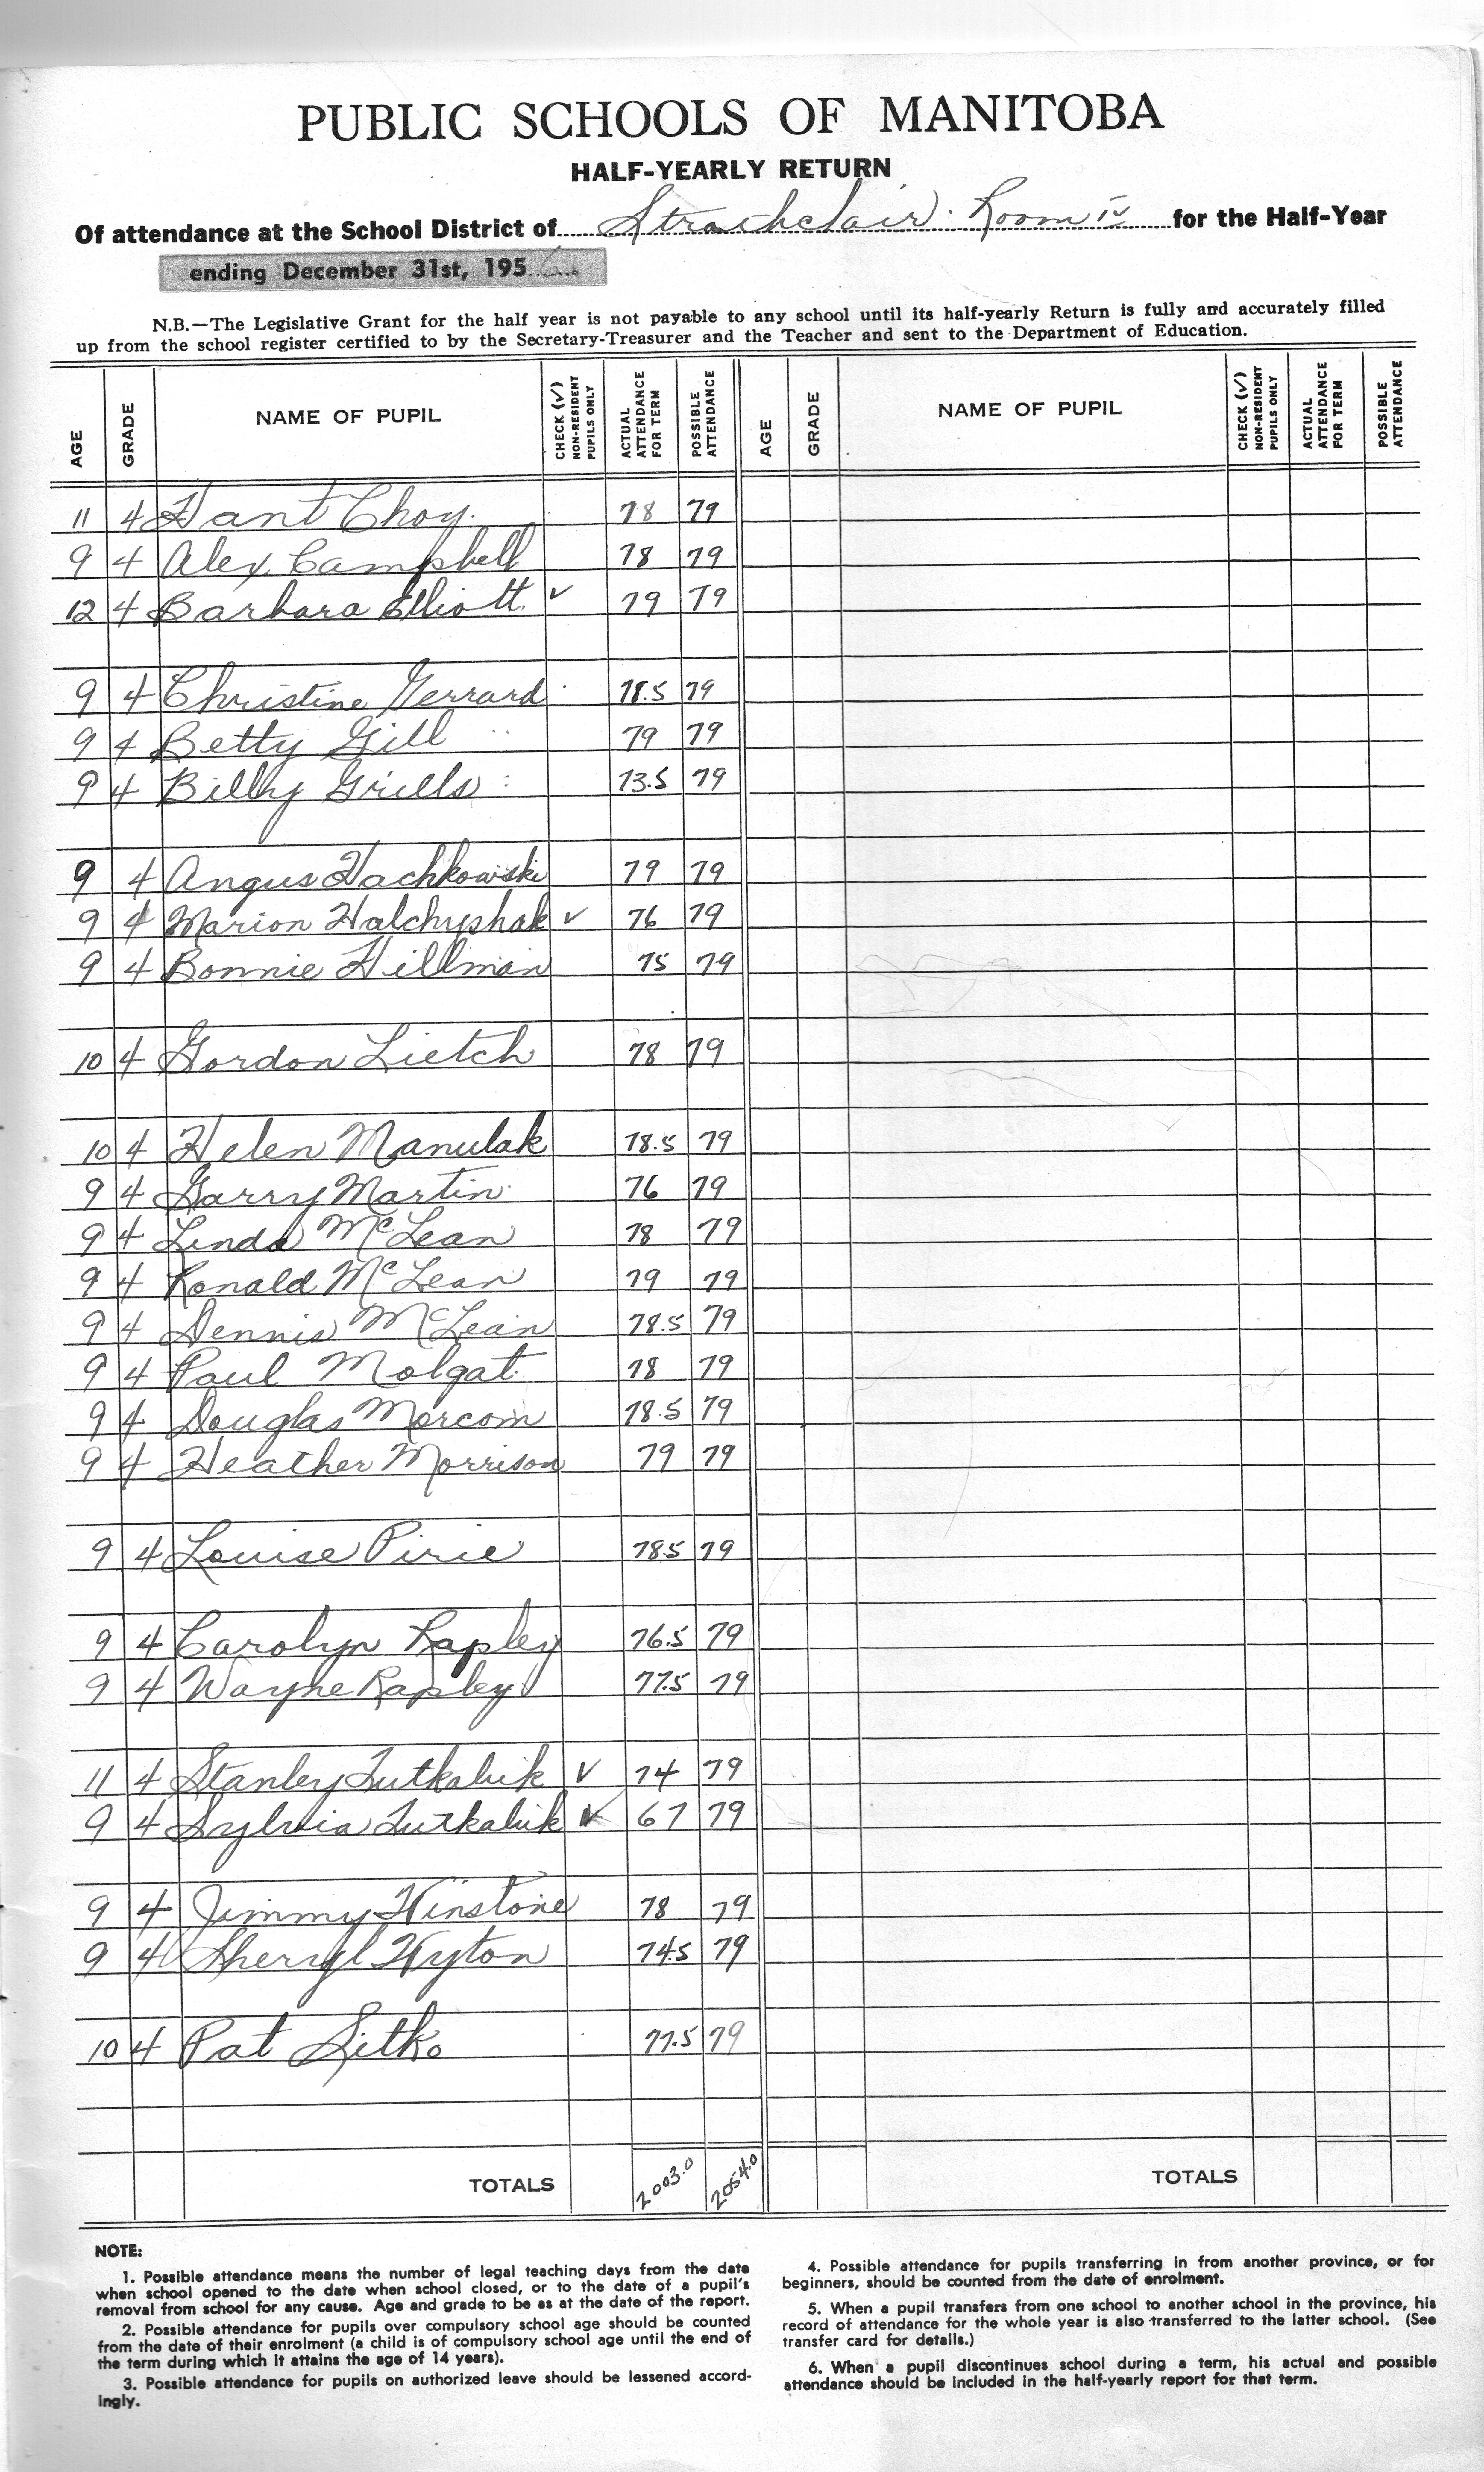 PUBLIC SCHOOLS OF MANITOBA
HALF-YEARLY RETURN
Of attendance at the School District of Strathclair Room IV for the Half-Year
ending December 31st, 195
N.B.—The Legislative Grant for the half year is not payable to any school until its half-yearly Return is fully and accurately filled
up from the school register certified to by the Secretary-Treasurer and the Teacher and sent to the Department of Education.
AGE GRADE NAME OF PUPIL CHECK (√) NON-RESIDENT PUPILS ONLY ACTUAL ATTENDANCE FOR TERM POSSIBLE ATTENDANCE AGE GRADE NAME OF PUPIL CHECK (√) NON-RESIDENT PUPILS ONLY ACTUAL ATTENDANCE FOR TERM POSSIBLE ATTENDANCE
11 4 Hant Choy 78 79
9 4 Alex Campbell 78 79
12 4 Barbara Elliott √ 79 79
9 4 Christine Gerrard 78.5 79
9 4 Betty Gill 79 79
9 4 Billy Grills 73.5 79
9 4 Angus Hachkowski 79 79
9 4 Marion Halchyshak √ 76 79
9 4 Bonnie Hillman 75 79
10 4 Gordon Lietch 78 79
10 4 Helen Manulak 78.5 79
9 4 Garry Martin 76 79
9 4 Linda McLean 78 79
9 4 Ronald McLean 79 79
9 4 Dennis McLean 78.5 79
9 4 Paul Molgat 78 79
9 4 Douglas Morcom 78.5 79
9 4 Heather Morrison 79 79
9 4 Louise Pirie 78.5 79
9 4 Carolyn Rapley 76.5 79
9 4 Wayne Rapley 77.5 79
11 4 Stanley Tutkaluk √ 74 79
9 4 Sylvia Tutkaluk √ 67 79
9 4 Jimmy Winstone 78 79
9 4 Sherryl Wyton 74.5 79
10 4 Pat Sitko 77.5 79
TOTALS 2003.0 2054.0 TOTALS
NOTE:
1. Possible attendance means the number of legal teaching days from the date
when school opened to the date when school closed, or to the date of a pupil's
removal from school for any cause. Age and grade to be as at the date of the report.
2. Possible attendance for pupils over compulsory school age should be counted
from the date of their enrolment (a child is of compulsory school age until the end of
the term during which it attains the age of 14 years).
3. Possible attendance for pupils on authorized leave should be lessened accord-
ingly.
4. Possible attendance for pupils transferring in from another province, or for
beginners, should be counted from the date of enrolment.
5. When a pupil transfers from one school to another school in the province, his
record of attendance for the whole year is also transferred to the latter school. (See
transfer card for details.)
6. When a pupil discontinues school during a term, his actual and possible
attendance should be included in the half-yearly report for that term.